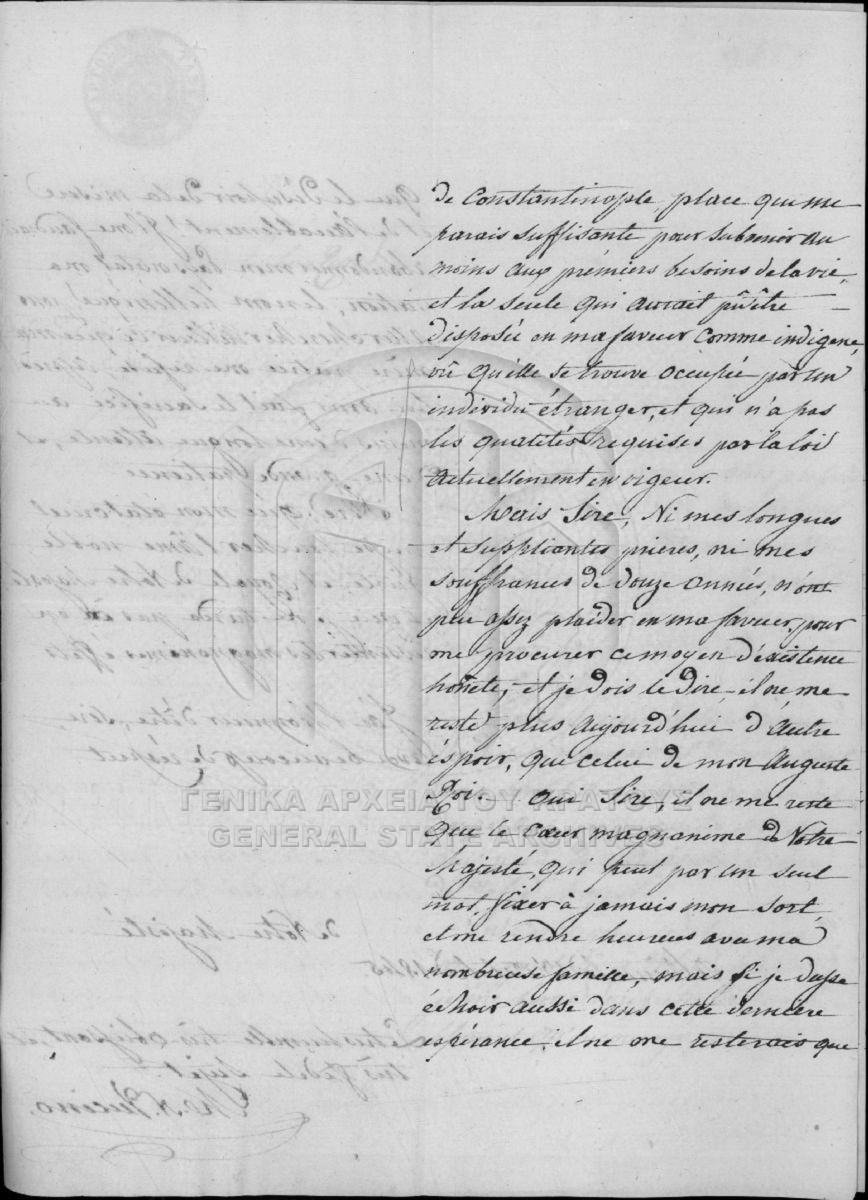 de Constantinople, place qui me
parais suffisante pour subvenir au
moins aux prémiers besoins de la vie,
et la seule qui aurait pû être
disposée en ma faveur comme indigene,
où qu'elle se trouve occupée par un
individu étranger, et qui n'a pas
les qualités requises par la loi
actuellement en vigeur.
Mais Sire, Ni mes longues
et suppliantes prieres, ni mes
souffrances de douze années, n'ont
peu assez plaider en ma faveur, pour
me procurer ce moyen d'existence
honête, et je dois le dire, il ne me
reste plus aujourd'hui d'autre
éspoir, que celui de mon Auguste
Roi. — Oui Sire, il ne me reste
que le Cœur magnanime de Votre
Majesté, qui peut par un seul
mot, fixer à jamais mon sort,
et me rendre heureux avec ma
nombreuse famille, mais si je dusse
échoir aussi dans cette derniere
espérance, il ne me resterais que
ΓΕΝΙΚΑ ΑΡΧΕΙΑ ΤΟΥ ΚΡΑΤΟΥΣ
GENERAL STATE ARCHIVES